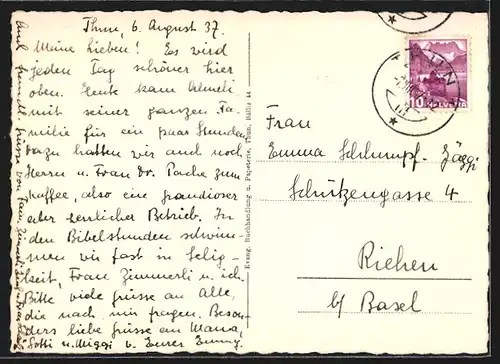 Thun, 6. August 37.
Meine Lieben! Es wird
jeden Tag schöner hier
oben. Heute kam
mit seiner ganzen Fa-
milie für ein paar Stunden
dazu hatten wir auch noch
Herrn u. Frau Dr. Pache zum
Kaffee, also ein grandioser
aber herrlicher Betrieb. In
den Bibelstunden schwim-
men wir fast in Selig-
keit, Frau Zimmerli u. ich.
Bitte viele Grüsse an Alle,
die nach mir fragen. Beson-
ders liebe Grüsse an Mama,
Lotti u. Miggi v. Eurer Emmy.
Auch freundl. Grüsse von Frau Zimmerli
Evang. Buchhandlung u. Papeterie, Thun, Bälliz 44
THUN
10 HELVETIA
Frau
Emma Schlumpf-Jäggi
Schützengasse 4
Riehen
b/ Basel